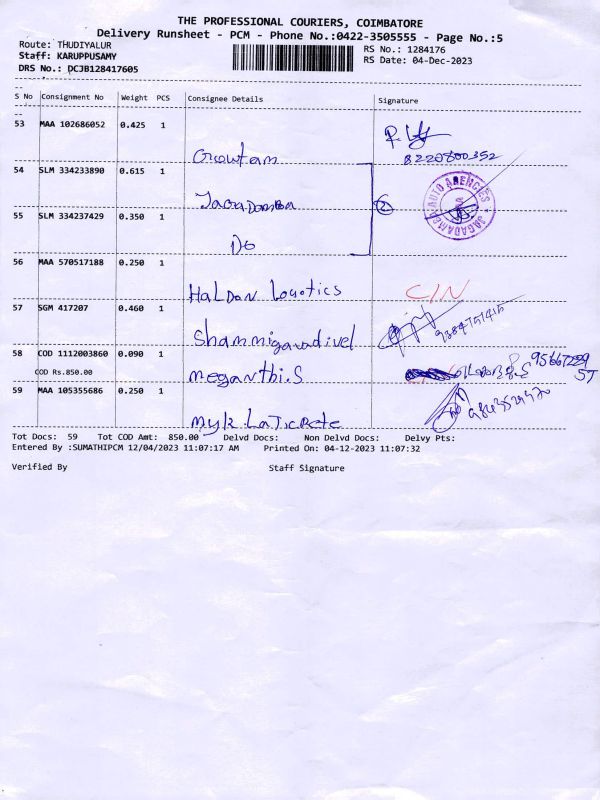 THE PROFESSIONAL COURIERS, COIMBATORE
Delivery Runsheet - PCM - Phone No.:0422-3505555 - Page No.:5
Route: THUDIYALUR
RS No.: 1284176
Staff: KARUPPUSAMY
RS Date: 04-Dec-2023
DRS No.: DCJB128417605
S No Consignment No Weight PCS Consignee Details Signature
53 MAA 102686052 0.425 1
Growtam
8220800352
54 SLM 334233890 0.615 1
Jagadamba
②
JAGADAMBA AUTO AGENCIES
55 SLM 334237429 0.350 1
Do
56 MAA 570517188 0.250 1
Haldon Logistics
C/N
57 SGM 417207 0.460 1
Shammigavadivel
58 COD 1112003860 0.090 1
COD Rs.850.00
Meganthi.S
ST
59 MAA 105355686 0.250 1
Myk Laticrete
Tot Docs: 59 Tot COD Amt: 850.00 Delvd Docs: Non Delvd Docs: Delvy Pts:
Entered By :SUMATHIPCM 12/04/2023 11:07:17 AM Printed On: 04-12-2023 11:07:32
Verified By Staff Signature